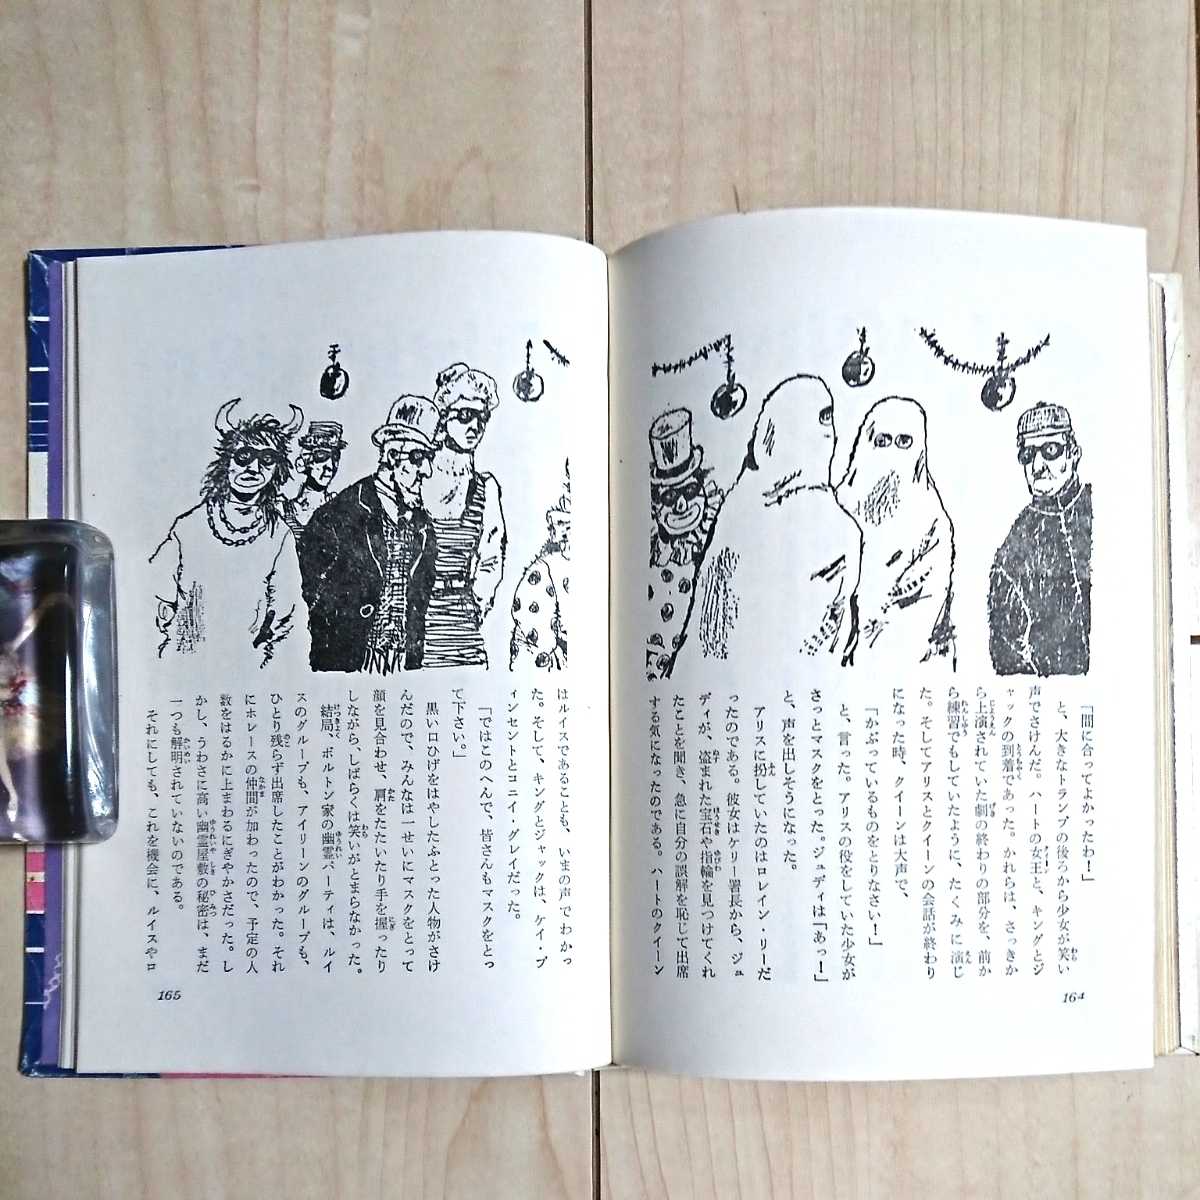 「間に合ってよかったわ！」
と、大きなトランプの後ろから少女が笑い
声でさけんだ。ハートの女王と、キングとジ
ャックの到着であった。かれらは、さっきか
ら上演されていた劇の終わりの部分を、前か
ら練習でもしていたように、たくみに演じ
た。そしてアリスとクイーンの会話が終わり
になった時、クイーンは大声で、
「かぶっているものをとりなさい！」
と、言った。アリスの役をしていた少女が
さっとマスクをとった。ジュディは「あっ！」
と、声を出しそうになった。
アリスに扮していたのはロレイン・リーだ
ったのである。彼女はケリー署長から、ジュ
ディが、盗まれた宝石や指輪を見つけてくれ
たことを聞き、急に自分の誤解を恥じて出席
する気になったのである。ハートのクイーン
164
はルイスであることも、いまの声でわかっ
た。そして、キングとジャックは、ケイ・ブ
ィンセントとコニイ・グレイだった。
「ではこのへんで、皆さんもマスクをとっ
て下さい。」
黒い口ひげをはやしたふとった人物がさけ
んだので、みんなは一せいにマスクをとって
顔を見合わせ、肩をたたいたり手を握ったり
しながら、しばらくは笑いがとまらなかった。
結局、ボルトン家の幽霊パーティは、ルイ
スのグループも、アイリーンのグループも、
ひとり残らず出席したことがわかった。それ
にホレースの仲間が加わったので、予定の人
数をはるかに上まわるにぎやかさだった。し
かし、うわさに高い幽霊屋敷の秘密は、まだ
一つも解明されていないのである。
それにしても、これを機会に、ルイスやロ
165